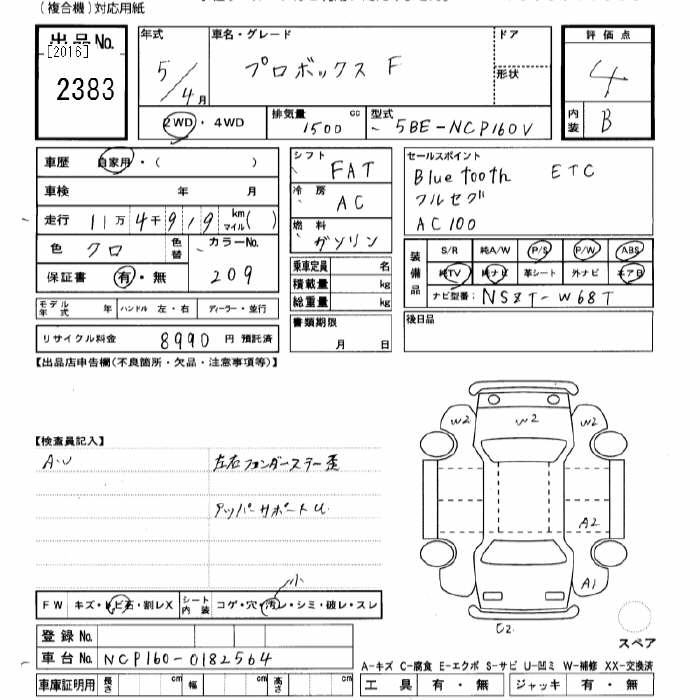 (複合機)対応用紙
出品No. [2016] 2383
年式 5/4月
車名・グレード プロボックス F
ドア
形状
2WD・4WD
排気量 1500 cc
型式 5BE-NCP160V
評価点 4
内装 B
車歴 自家用・( )
車検 年 月
走行 11万4千919 km マイル( )
色 クロ 色替 カラーNo. 209
保証書 有・無
モデル年式 年 ハンドル 左・右 ディーラー・並行
リサイクル料金 8990 円 預託済
シフト FAT
冷房 AC
燃料 ガソリン
乗車定員 名
積載量 kg
総重量 kg
書類期限 月 日
セールスポイント
Bluetooth ETC
フルセグ
AC100
装備品 S/R 純A/W P/S P/W ABS
純TV 純ナビ 革シート 外ナビ エアB
ナビ型番 NSZT-W68T
後日品
【出品店申告欄(不良箇所・欠品・注意事項等)】
【検査員記入】
A・U 左右フェンダーステー歪
アッパーサポートU
W2 W2 W2
A2
A1
C2
スペア
FW キズ・トビ石・割レX シート内装 コゲ・穴・汚レ・シミ・破レ・スレ
小
登録No.
車台No. NCP160-0182564
車庫証明用 長さ cm 幅 cm 高さ cm
A-キズ C-腐食 E-エクボ S-サビ U-凹ミ W-補修 XX-交換済
工具 有・無 ジャッキ 有・無